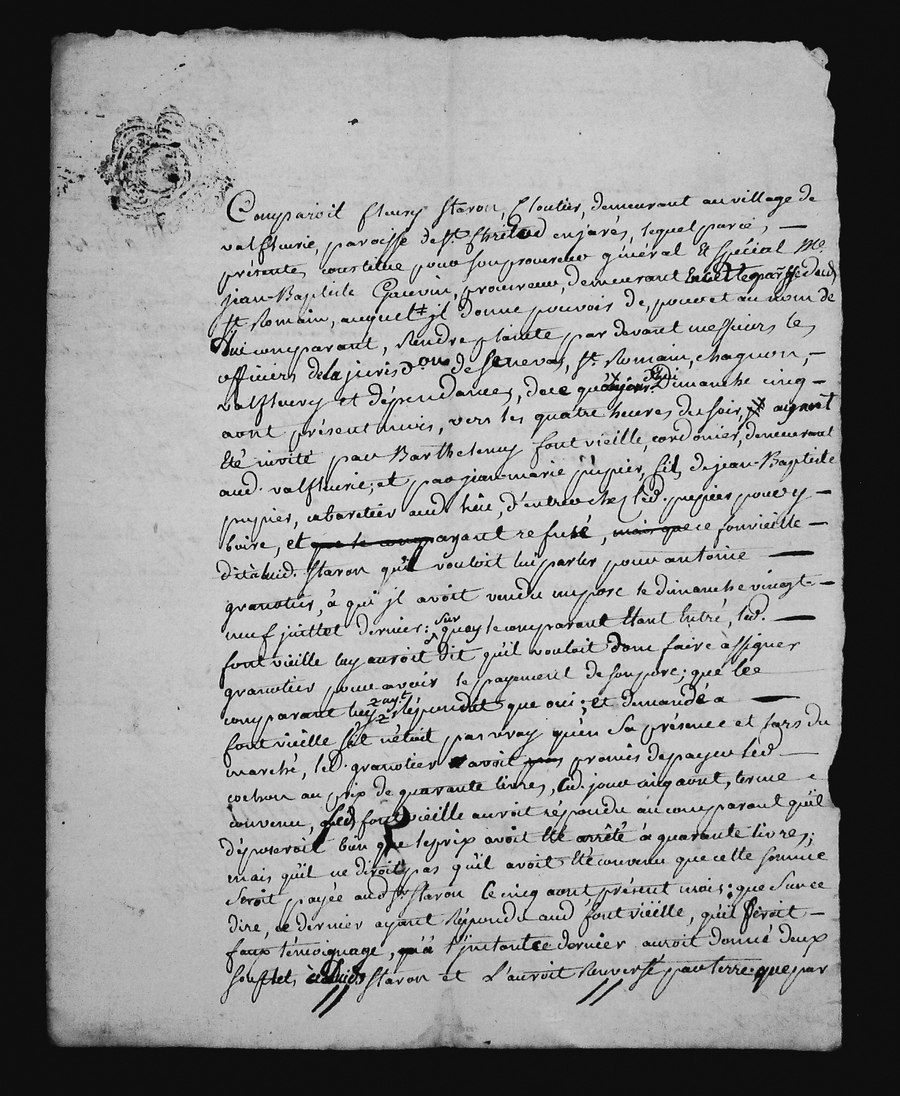 Comparoit fleury staron, Cloutier, demeurant au village de
valfleurie, paroisse de St. en jarés, lequel par ce, —
présente, constitue pour son procureur général Et spécial Me.
jean-Baptiste Gauvin, procureur, demeurant
St. Romain, auquel jl donne pouvoir de, pour et au nom de
lui comparant, Rendre plainte par devant messieurs les
officiers de la jurisd.on de Senevas, St. Romain, chagnon, —
valfleury et dépendances, de ce dimanche cinq —
aout présent mois, vers les quatre heures du soir, ayant
Eté invité par Barthelemy font vieille, cordonier, demeurant
aud. valfleurie, et par jean-marie pupier, fils de jean-Baptiste
pupier, cabaretier aud. lieu, d'entrer chez led. pupier pour y —
boire, et ayant refusé, ce fonvieille —
dit aud. staron qu'il vouloit luy parler pour antoine —
granotier, à qui jl avoit vendu un porc le dimanche vingt-
neuf juillet dernier: sur quoy le comparant Etant Entré, led. —
font vieille luy auroit dit qu'il vouloit donc faire assigner
granotier pour avoir le payement de son porc; que le
comparant luy ayt répondu que oui; et demandé a —
font vieille s'il n'étoit pas vray qu'en sa présence et lors du
marché, led. granotier avoit promis de payer led. —
cochon au prix de quarante livres, led. jour cinq aout, terme
convenu, led. font vieille auroit répondu au comparant qu'il
déposeroit bien que le prix avoit Eté arrêté a quarante livres;
mais qu'il ne diroit pas qu'il avoit Eté convenu que cette somme
Seroit payée aud. St. staron le cinq aout présent mois: que Sur ce
dire, ce dernier ayant Répondu aud. font vieille, qu'il feroit —
faux témoignage, qu'à l'jnstant ce dernier auroit donné deux
soufflet, staron et l'auroit Renversé par terre: que par